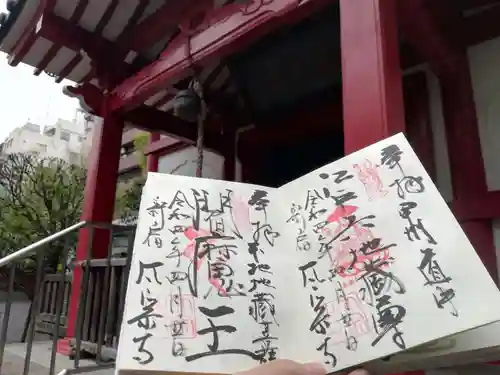 奉拝 甲州道中
江戸六地蔵尊
令和四年四月廿日
新宿 太宗寺
奉拝 本地地蔵
閻魔王
令和四年四月廿日
新宿 太宗寺